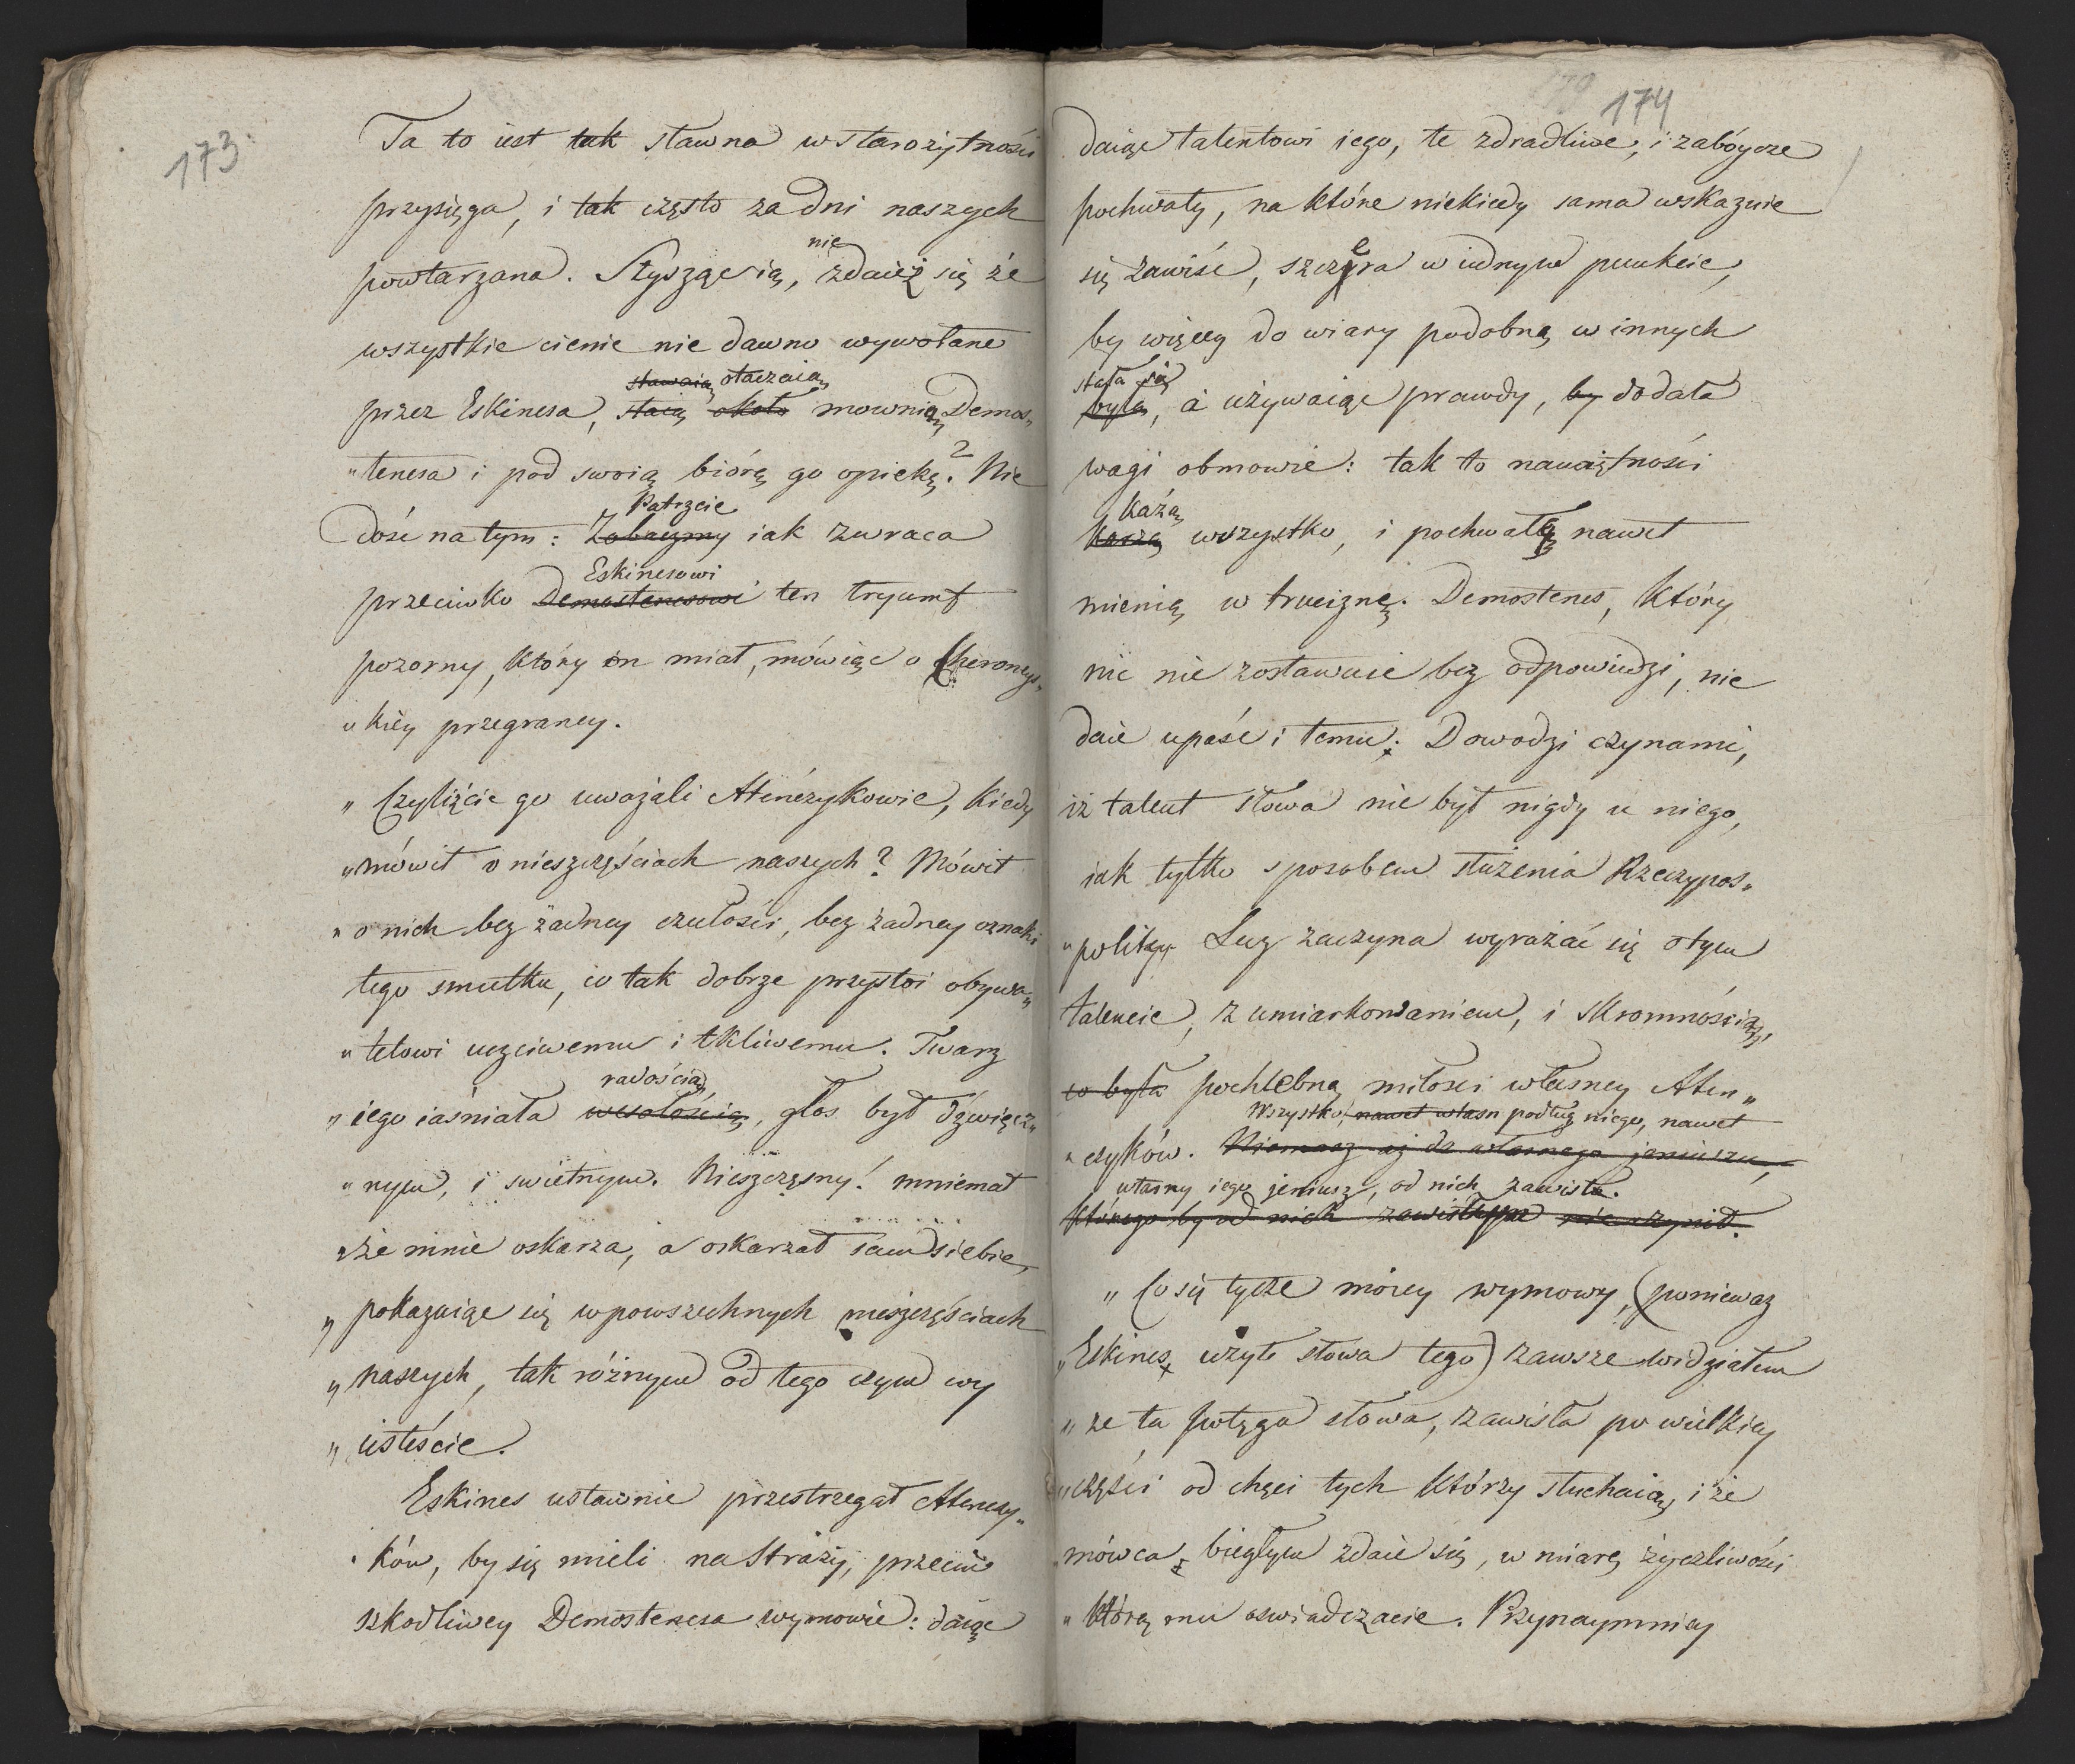 173
Ta to iest tak sławna w starożytności
przysięga, i tak często za dni naszych
nie
powtarzana. Słysząc ią, zdaież się że
wszystkie cienie nie dawno wywołane
stawaią otaczaią
przez Eskinesa, staią około mownią Demos„
„tenesa i pod swoią biórą go opiekę? Nie
Patrzcie
dość na tym: Zobaczmy iak zwraca
Eskinesowi
przeciwko Demostenesowi ten tryumf
pozorny, który on miał, mówiąc o Cheroneys„
„kiey przegraney.
„ Czyliżcie go uważali Ateńczykowie, kiedy
„mówił o nieszczęściach naszych? Mówił
„ o nich bez żadney czułości, bez żadney oznaki
tego smutku, co tak dobrze przystoi obywa„
„telowi uczciwemu i tkliwemu. Twarz
radością
„ iego iaśniała wesołością, głos był dźwięcz„
„nym, i swietnym. Nieszczęsny! mniemał
„że mnie oskarża, a oskarżał sam siebie,
„ pokazuiąc się w powszechnych nieszczęściach
„ naszych, tak różnym od tego czym wy
„ iesteście.
Eskines ustawnie przestrzegał Atenczy„
„ków, by się mieli na straży, przeciw
szkodliwey Demostenesa wymowie: daiąc
174
daiąc talentowi iego, te zdradliwe, i zabóycze
pochwały, na które niekiedy sama wskazuie
e
się zawiść, szczyra w iednym punkcie,
by więcey do wiary podobną w innych
stała się
była, a używaiąc prawdy, by dodała
wagi obmowie: tak to namiętności
każą
każą wszystko, i pochwałę nawet
mienią w truciznę. Demostenes, który
nic nie zostawuie bez odpowiedzi, nie
daie upaść i temu: Dowodzi czynami,
iż talent słowa nie był nigdy u niego,
iak tylko sposobem służenia Rzeczypos„
„politey. Lecz zaczyna wyrażać się o tym
talencie, z umiarkowaniem, i skromnością,
co była pochlebną miłości własney Aten„
Wszystko, nawet własn podług niego, nawet
„czyków. Niemasz aż do własnego jeniuszu,
własny iego jeniusz, od nich zawisł.
któregoby od nich zawisłym nie czynił.
„ Co się tycze moiey wymowy, (ponieważ
„Eskines użyłe słowa tego) zawsze widziałem
„ że ta potęga słowa, zawisła po wielkiey
„części od chęci tych którzy słuchaią, i że
„mówca biegłym zdaie się, w miarę życzliwości
„ którą mu oswiadczacie. Przynaymniey